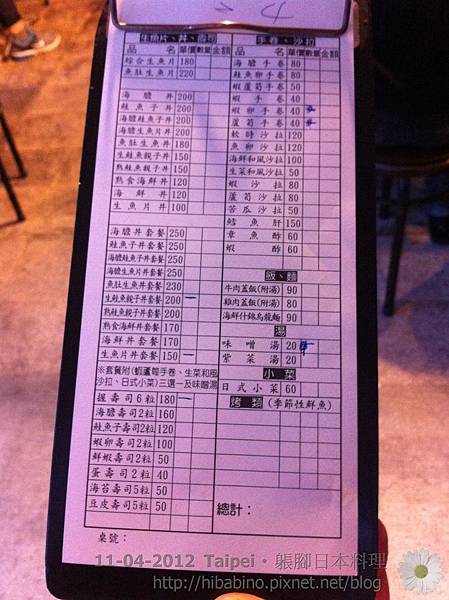 生魚片、丼、壽司
品 名 單價 數量 金額
綜合生魚片 180
魚肚生魚片 220
海膽丼 200
鮭魚子丼 200
海膽鮭魚子丼 200
海膽生魚片丼 200
魚肚生魚丼 180
生鮭魚親子丼 150
熟鮭魚親子丼 150
熟食海鮮丼 120
海鮮丼 120
生魚片丼 100
海膽丼套餐 250
鮭魚子丼套餐 250
海膽鮭魚子丼套餐 250
海膽生魚片丼套餐 250
魚肚生魚丼套餐 230
生鮭魚親子丼套餐 200
熟鮭魚親子丼套餐 200
熟食海鮮丼套餐 170
海鮮丼套餐 170
生魚片丼套餐 150
※套餐附(蝦蘆筍手卷、生菜和風
沙拉、日式小菜)三選一及味噌湯
握壽司6粒 180
海膽壽司2粒 160
鮭魚子壽司2粒 120
蝦卵壽司2粒 100
鮮蝦壽司2粒 50
蛋壽司2粒 40
海苔壽司5粒 50
豆皮壽司5粒 50
桌號:
手卷、沙拉
品 名 單價 數量 金額
海膽手卷 80
鮭魚卵手卷 80
蝦蘆筍手卷 50
蝦手卷 40
蝦卵手卷 40
蘆筍手卷 40
軟時沙拉 120
魚卵沙拉 120
海鮮和風沙拉 100
生菜和風沙拉 50
蝦沙拉 80
蘆筍沙拉 80
苦瓜沙拉 50
鱈魚肝 150
章魚酢 60
蝦酢 60
飯、麵
牛肉蓋飯(附湯) 90
雞肉蓋飯(附湯) 80
海鮮什錦烏龍麵 90
湯
味噌湯 20
紫菜湯 20
小菜
日式小菜 60
烤類 (季節性鮮魚)
總計:
11-04-2012 Taipei・躼腳日本料理
http://hibabino.pixnet.net/blog